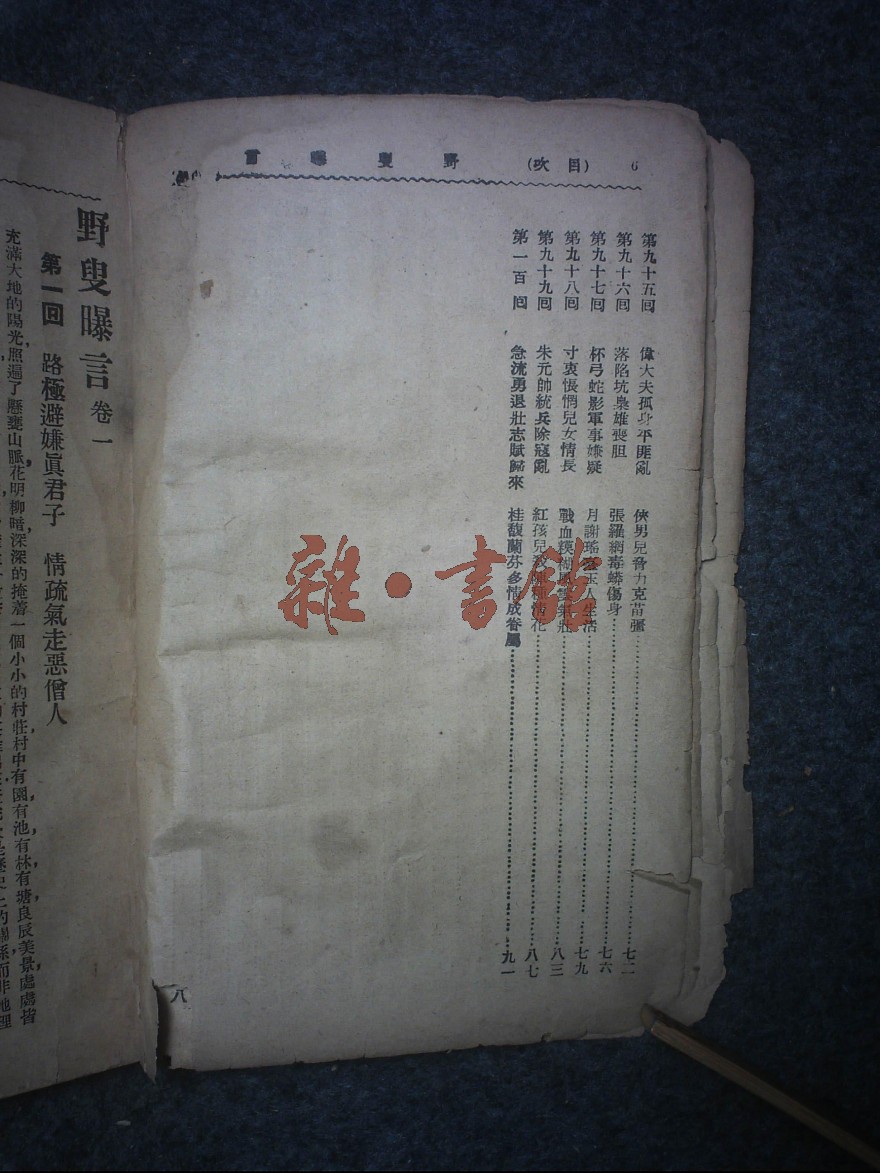 野叟曝言 (目次) 6
第九十五回 偉大夫孤身平匪亂 俠男兒膂力克苗彊 七二
第九十六回 落陷坑梟雄喪胆 張羅網毒蟒傷身 七六
第九十七回 杯弓蛇影軍事嫌疑 月謝瑤 玉人生活 七九
第九十八回 寸衷悵惘兒女情長 戰血糢糊 壯 八三
第九十九回 朱元帥統兵除寇亂 紅孩兒 花 八七
第一百回 急流勇退壯志賦歸來 桂馥蘭芬多情成眷屬 九一
八
野叟曝言 卷一
第一回 路極避嫌眞君子 情疏氣走惡僧人
充滿大地的陽光照遍了懸甕山脈花明柳暗深深的掩着一個小小的村莊村中有園有池有林有塘良辰美景處處皆
雜·書館